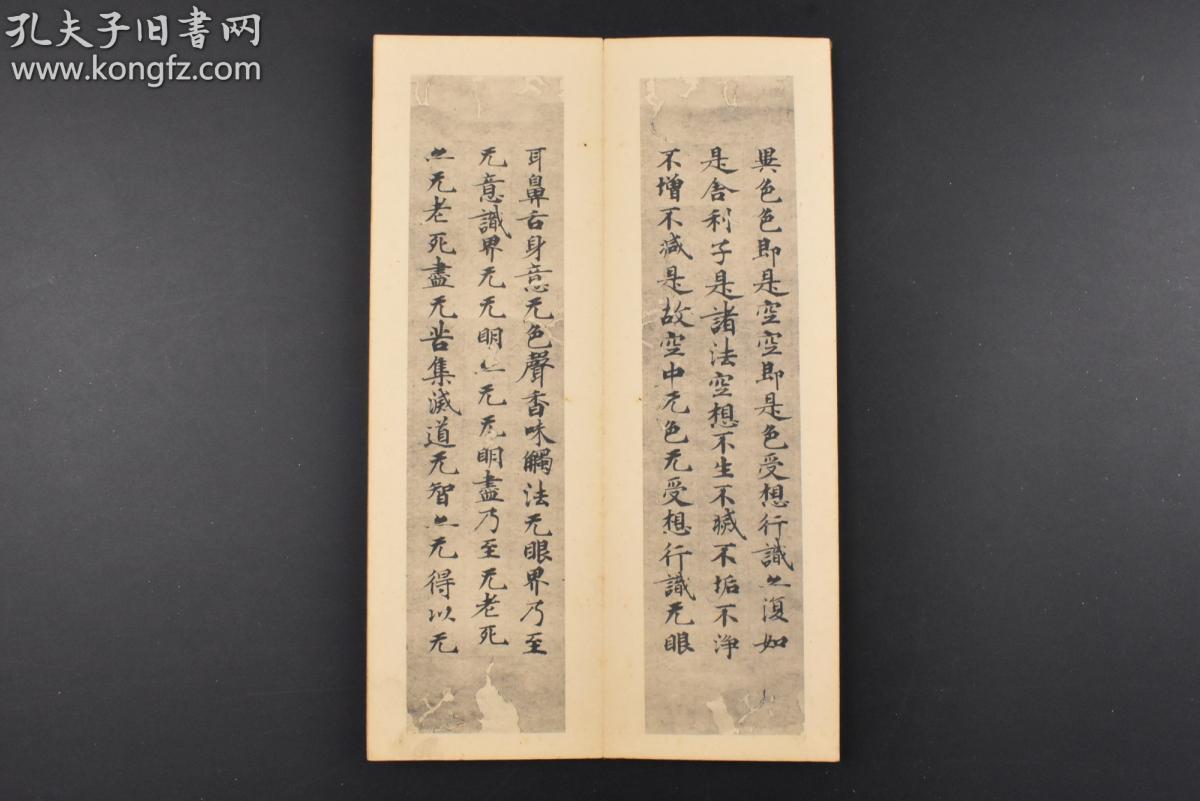 孔夫子旧书网
www.kongfz.com
異色色即是空空即是色受想行識亦復如
是舍利子是諸法空想不生不滅不垢不淨
不增不減是故空中无色无受想行識无眼
耳鼻舌身意无色聲香味觸法无眼界乃至
无意識界无无明亦无无明盡乃至无老死
亦无老死盡无苦集滅道无智亦无得以无